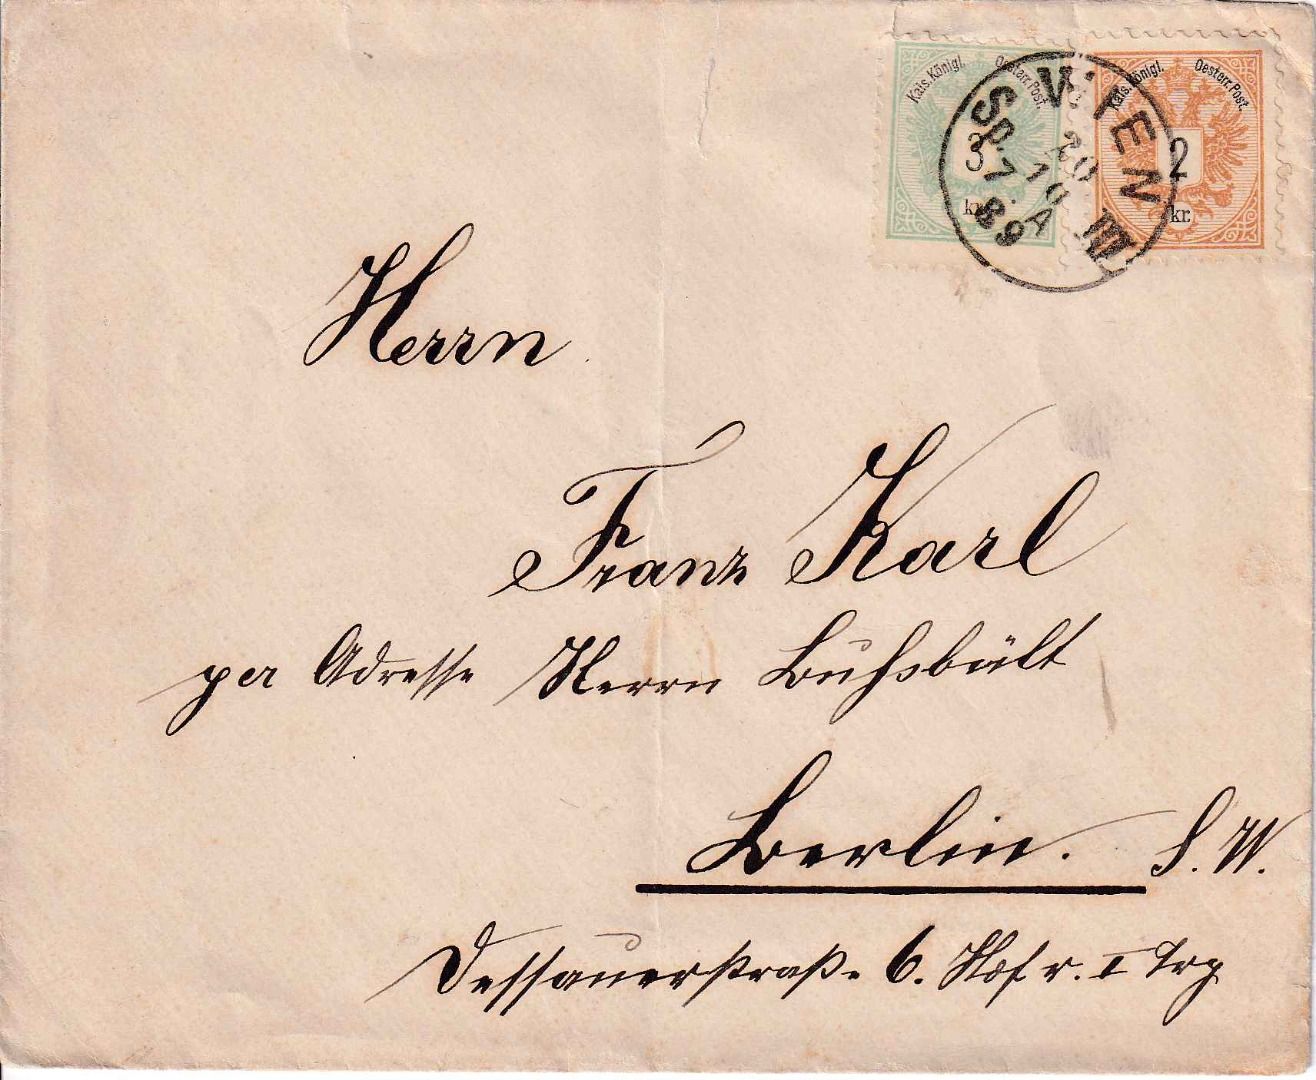 Kais. Königl. Oesterr. Post.
3 kr.
Kais. Königl. Oesterr. Post.
2 kr.
WIEN
Sp. 7. A
20 10
89
Herrn
Franz Karl
per Adresse Herrn
Berlin. S. W.
Dessauerstraße 6. Hof r. I Trp